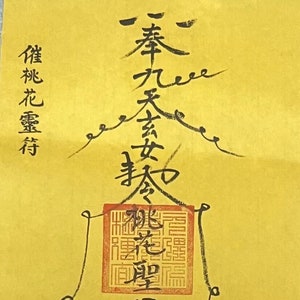 催桃花靈符
奉九天玄女敕令桃花聖